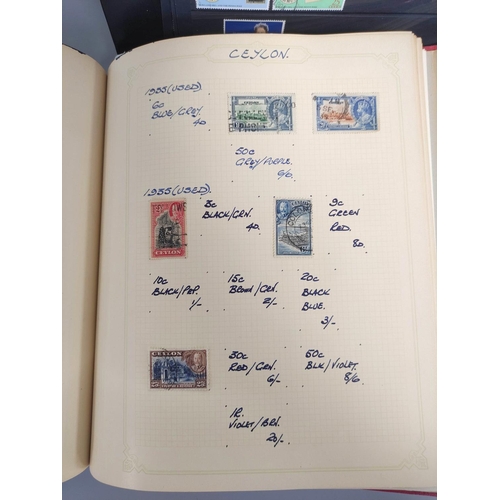 CEYLON.
1935 (USED)
6c
BLUE/GREY.
4D.
50c
GREY/PURPLE.
6/6
1935 (USED).
3c
BLACK/GRN.
4D.
9c
GREEN
RED.
8D.
10c
BLACK/PUR.
1/-
15c
BROWN/GRN.
2/-
20c
BLACK
BLUE.
3/-
CEYLON
25
30c
RED/GRN.
6/-
50c
BLK/VIOLET.
8/6
1R.
VIOLET/BRN.
20/-